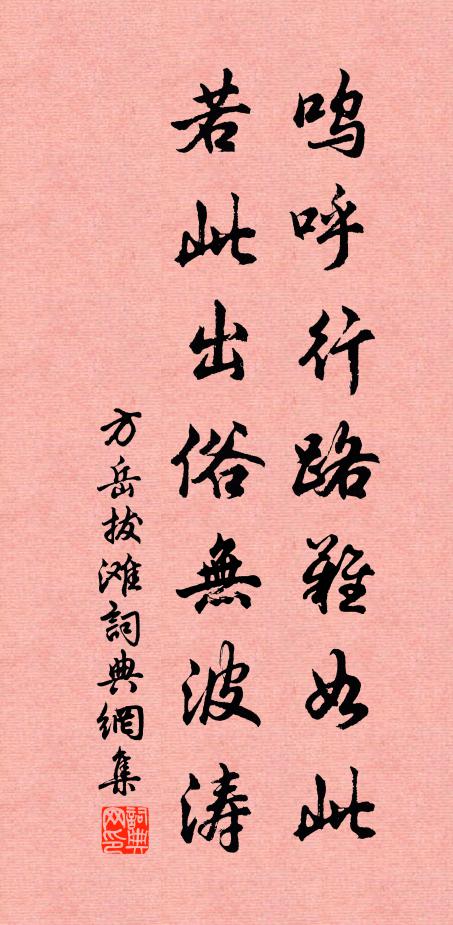 呜呼行路难如此
若此出俗無波涛
方岳拔滩詞典網集
詞典网印